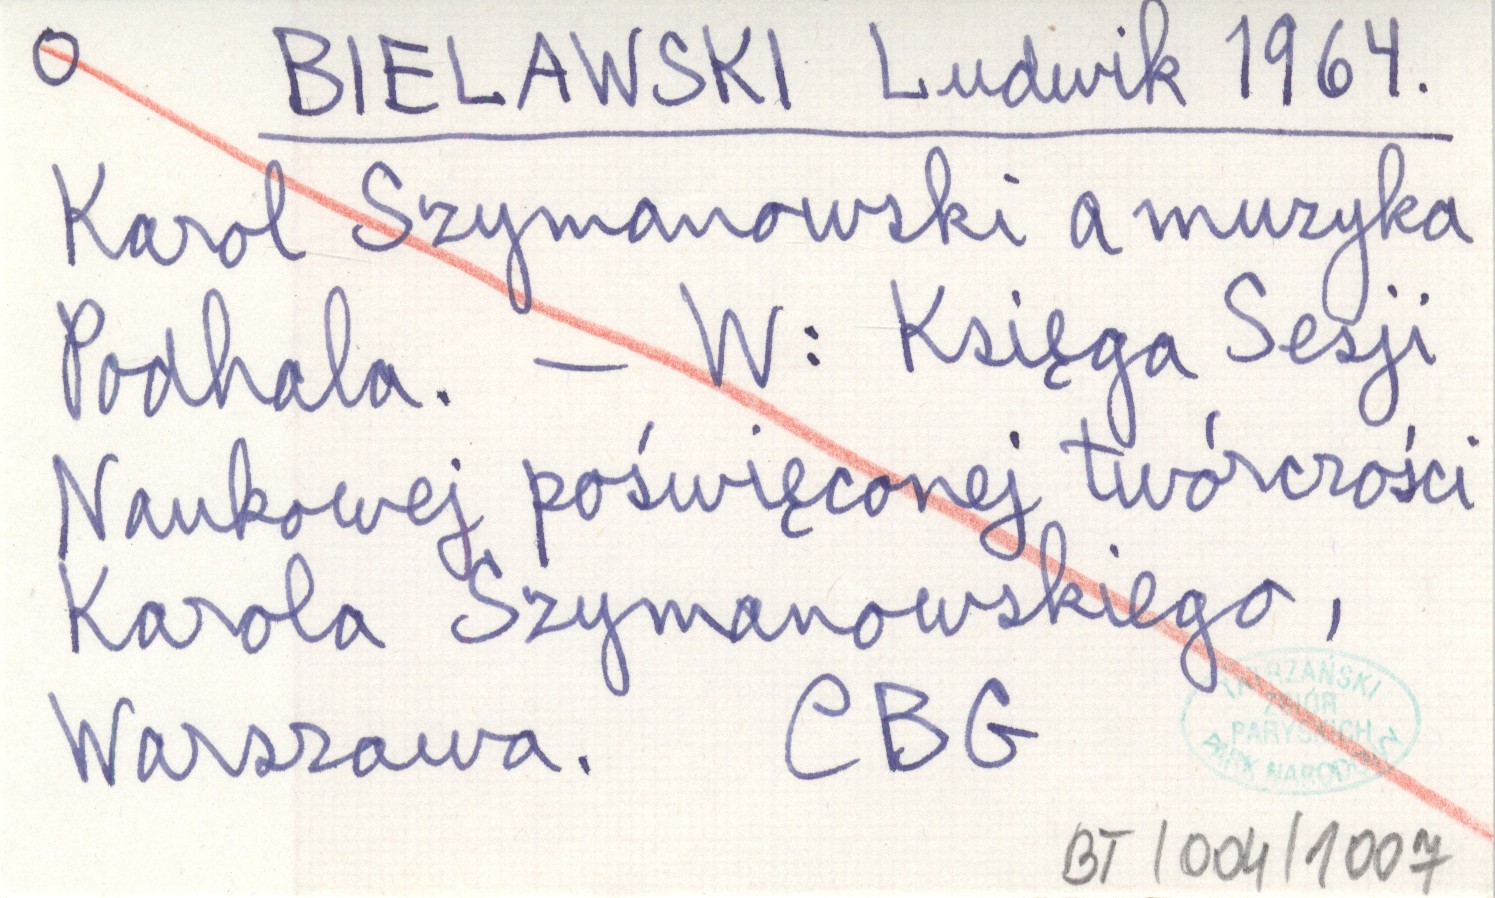 O BIELAWSKI Ludwik 1964.
Karol Szymanowski a muzyka
Podhala. — W: Księga Sesji
Naukowej poświęconej twórczości
Karola Szymanowskiego,
Warszawa. CBG
TATRZAŃSKI
ZBIÓR
PARYSKICH
PARK NARODOWY
BT/004/1007